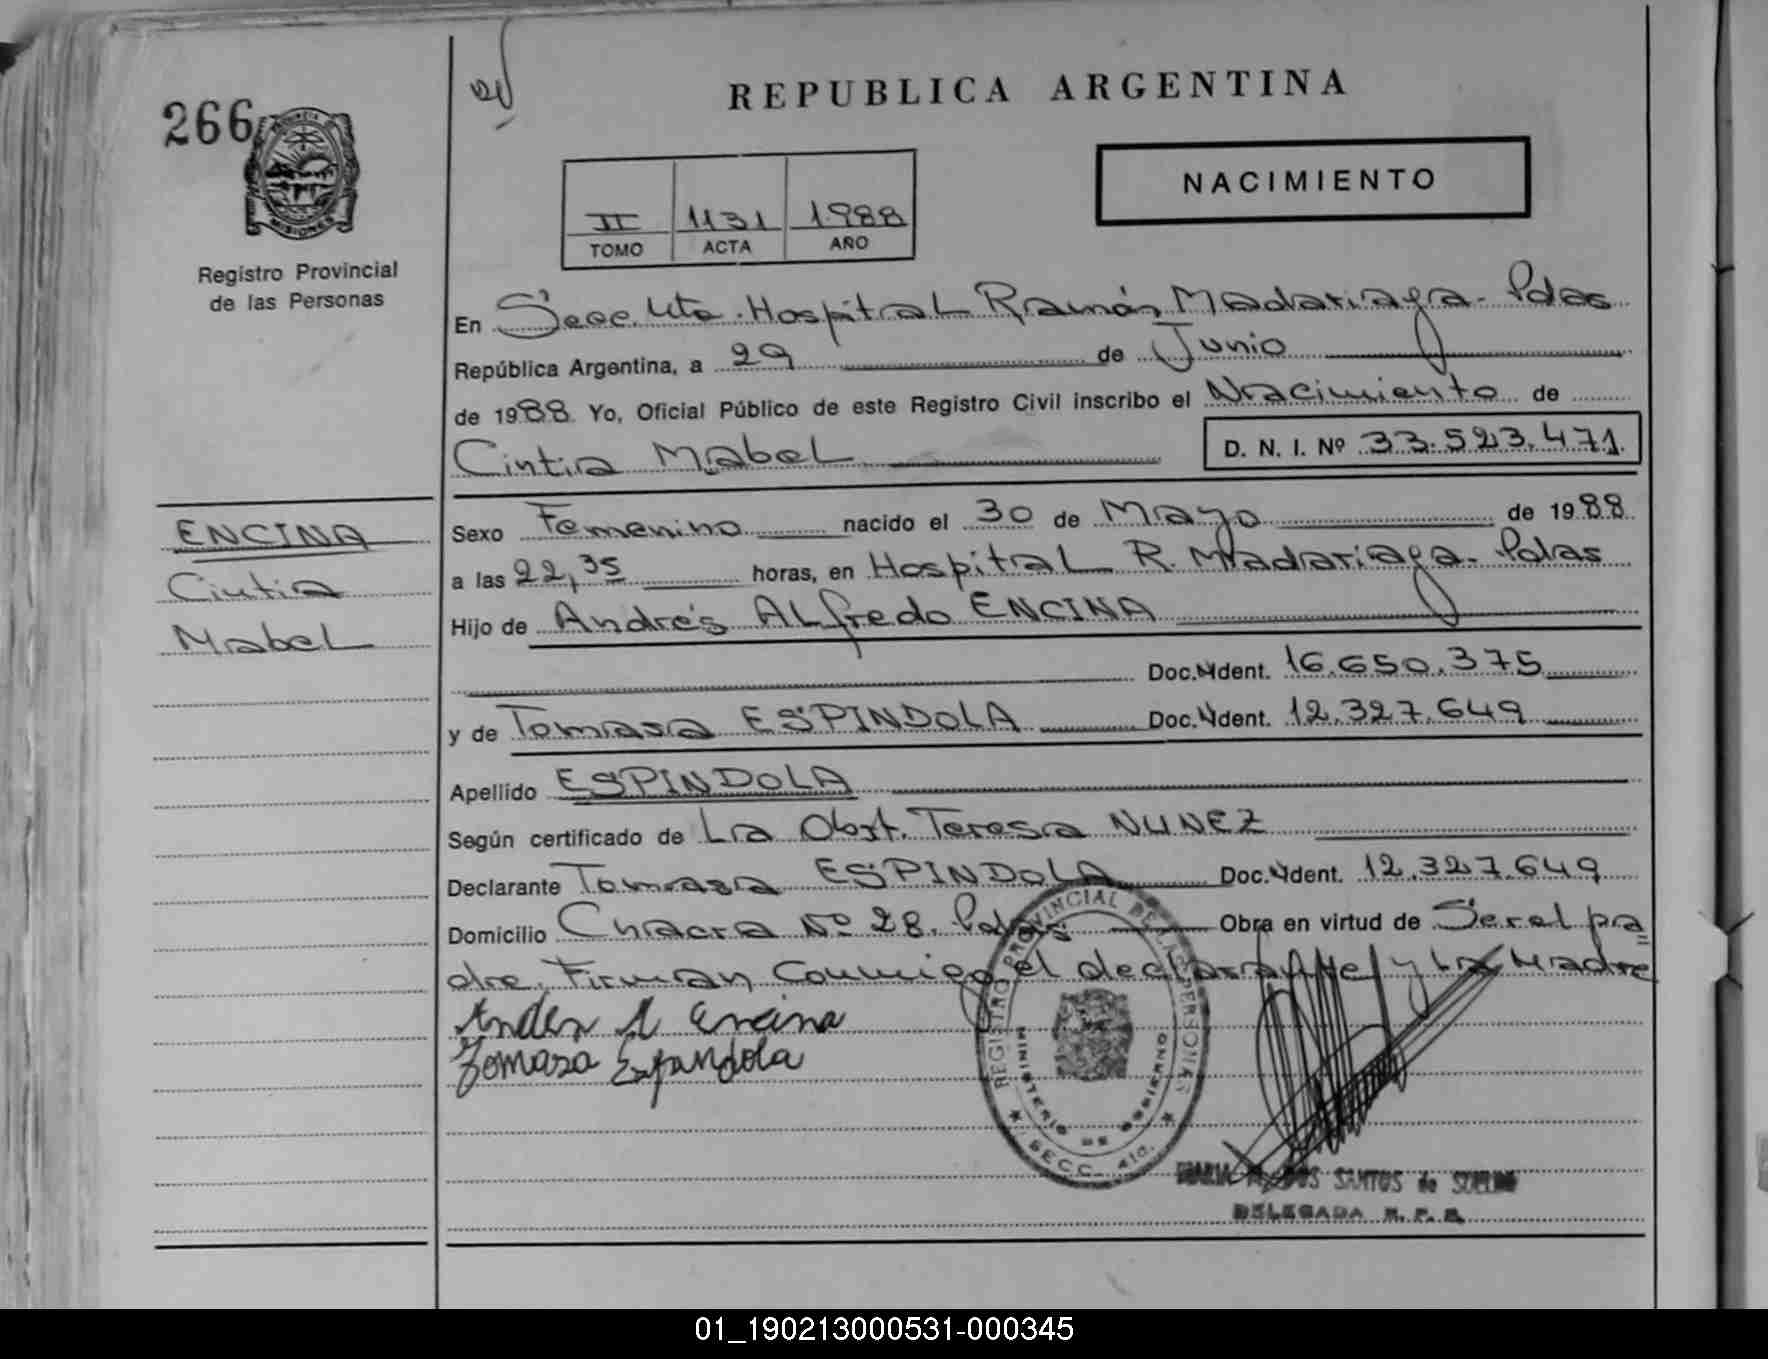 266
PROVINCIA DE
MISIONES
Registro Provincial
de las Personas
REPUBLICA ARGENTINA
NACIMIENTO
II 1131 1988
TOMO ACTA AÑO
En Secc. 4ta. Hospital Ramón Madariaga - Pdas
República Argentina, a 29 de Junio
de 1988 Yo, Oficial Público de este Registro Civil inscribo el Nacimiento de
Cintia Mabel D. N. I. Nº 33.523.471.
ENCINA
Cintia
Mabel
Sexo Femenino nacido el 30 de Mayo de 1988
a las 22,35 horas, en Hospital R. Madariaga - Pdas
Hijo de Andrés Alfredo ENCINA
Doc. Ident. 16.650.375
y de Tomasa ESPINDOLA Doc. Ident. 12.327.649
Apellido ESPINDOLA
Según certificado de La Obst. Teresa NUNEZ
Declarante Tomasa ESPINDOLA Doc. Ident. 12.327.649
Domicilio Chacra Nº 28. Pdas Obra en virtud de Ser el pa=
dre. Firman Conmigo el declarante y La Madre
Andes A Encina
Tomasa Espandola
REGISTRO PROVINCIAL DE LAS PERSONAS
MINISTERIO DE GOBIERNO
SECC. 4ta.
DOS SANTOS de
DELEGADA R. P. P.
01_190213000531-000345